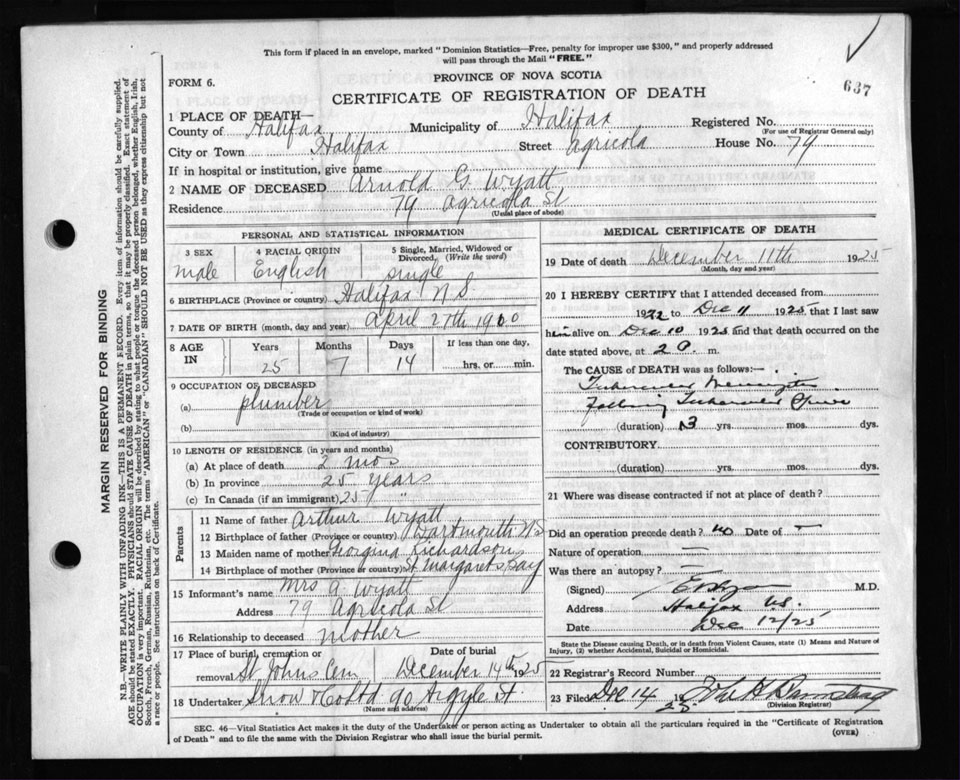 This form if placed in an envelope, marked "Dominion Statistics—Free, penalty for improper use $300," and properly addressed
will pass through the Mail "FREE."
637
FORM 6.
PROVINCE OF NOVA SCOTIA
CERTIFICATE OF REGISTRATION OF DEATH
1 PLACE OF DEATH—
County of Halifax Municipality of Halifax Registered No.
(For use of Registrar General only)
City or Town Halifax Street Agricola House No. 79
If in hospital or institution, give name
2 NAME OF DECEASED Arnold G. Wyatt
Residence 79 Agricola St
(Usual place of abode)
PERSONAL AND STATISTICAL INFORMATION
3 SEX 4 RACIAL ORIGIN 5 Single, Married, Widowed or
Divorced, (Write the word)
male English single
6 BIRTHPLACE (Province or country) Halifax N.S.
7 DATE OF BIRTH (month, day and year) April 27th 1900
8 AGE IN Years Months Days If less than one day,
25 7 14 hrs. or min.
9 OCCUPATION OF DECEASED
(a) plumber
(Trade or occupation or kind of work)
(b)
(Kind of industry)
10 LENGTH OF RESIDENCE (in years and months)
(a) At place of death 2 mos
(b) In province 25 years
(c) In Canada (if an immigrant) 25 "
Parents
11 Name of father Arthur Wyatt
12 Birthplace of father (Province or country) Dartmouth N S
13 Maiden name of mother Georgina Richardson
14 Birthplace of mother (Province or country) St Margarets Bay
15 Informant's name Mrs A. Wyatt
Address 79 Agricola St
16 Relationship to deceased mother
17 Place of burial, cremation or Date of burial
removal St Johns Cem December 14th 1925
18 Undertaker Snow & Co Ltd 90 Argyle St
(Name and address)
MEDICAL CERTIFICATE OF DEATH
19 Date of death December 11th 1925
(Month, day and year)
20 I HEREBY CERTIFY that I attended deceased from
1922 to Dec 11 1925 that I last saw
him alive on Dec 10 1925 and that death occurred on the
date stated above, at 2 a. m.
The CAUSE of DEATH was as follows:—
Tubercular Meningitis
following Tubercular Spine
(duration) 13 yrs. mos. dys.
CONTRIBUTORY.
(duration) yrs. mos. dys.
21 Where was disease contracted if not at place of death?
Did an operation precede death? no Date of —
Nature of operation —
Was there an autopsy? —
(Signed) M.D.
Address Halifax N.S.
Date Dec 12/25
State the Disease causing Death, or in death from Violent Causes, state (1) Means and Nature of
Injury, (2) whether Accidental, Suicidal or Homicidal.
22 Registrar's Record Number
23 Filed Dec 14 1925
(Division Registrar)
SEC. 46—Vital Statistics Act makes it the duty of the Undertaker or person acting as Undertaker to obtain all the particulars required in the "Certificate of Registration
of Death" and to file the same with the Division Registrar who shall issue the burial permit.
(OVER)
MARGIN RESERVED FOR BINDING
N.B.—WRITE PLAINLY WITH UNFADING INK—THIS IS A PERMANENT RECORD. Every item of information should be carefully supplied.
AGE should be stated EXACTLY. PHYSICIANS should STATE CAUSE OF DEATH in plain terms, so that it may be properly classified. Exact statement of
OCCUPATION is very important. RACIAL ORIGIN will be described by stating to what people or tongue the deceased person belonged, whether English, Irish,
Scotch, French, German, Russian, Ruthenian, etc. The terms "AMERICAN" or "CANADIAN" SHOULD NOT BE USED as they express citizenship but not
a race or people. See instructions on back of Certificate.